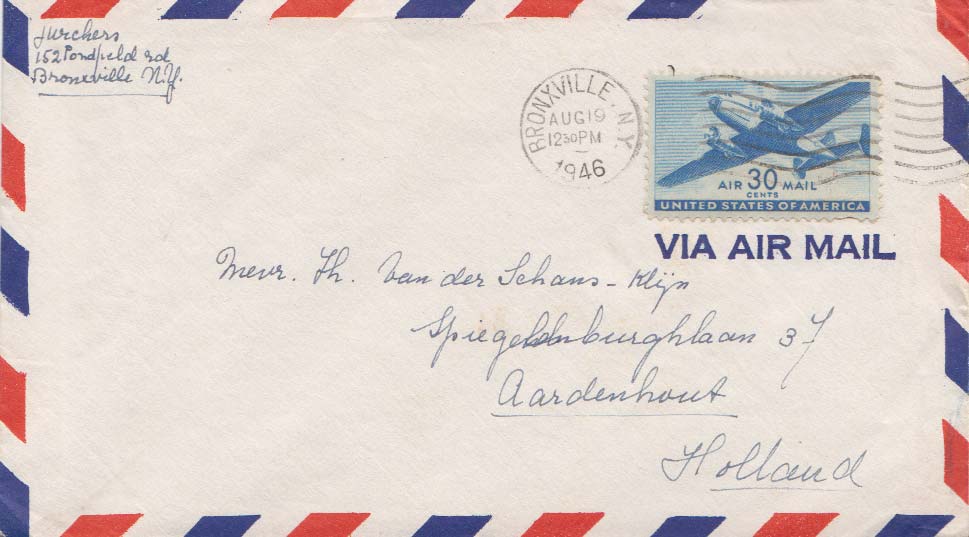 Jurchers
152 Pondfield rd
Bronxville N.Y.
BRONXVILLE, N.Y.
AUG 19
12 30 PM
1946
AIR 30 MAIL
CENTS
UNITED STATES OF AMERICA
VIA AIR MAIL
Mevr. Th. Van der Schans-Klijn
Spiegelenburghlaan 37
Aardenhout
Holland